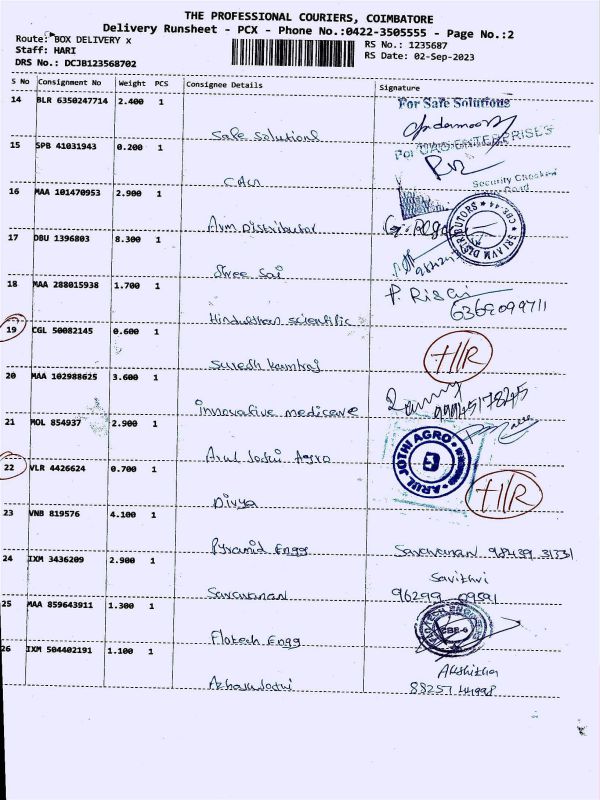 THE PROFESSIONAL COURIERS, COIMBATORE
Delivery Runsheet - PCX - Phone No.:0422-3505555 - Page No.:2
Route: BOX DELIVERY x
RS No.: 1235687
Staff: HARI
RS Date: 02-Sep-2023
DRS No.: DCJB123568702
S No Consignment No Weight PCS Consignee Details Signature
14 BLR 6350247714 2.400 1
For Safe Solutions
Safe Solutions
15 SPB 41031943 0.200 1
For ENTERPRISES
Security Checked
16 MAA 101470953 2.900 1
Avm Distributor
SRI AVM DISTRIBUTORS ★ CBE-44 ★
17 DBU 1396803 8.300 1
Shree Sai
18 MAA 288015938 1.700 1
Hindusthan scientific
6369099711
19 CGL 50082145 0.600 1
Suresh
20 MAA 102988625 3.600 1
innovative medicare
9994517845
21 MOL 854937 2.900 1
Arul Jothi Agro
ARUL JOTHI AGRO
22 VLR 4426624 0.700 1
Divya
23 VNB 819576 4.100 1
Pyramid Engg
Saravanan 98439 31331
24 IXM 3436209 2.900 1
Savithri
Saravanan
96299 09591
25 MAA 859643911 1.300 1
Flotech Engg
CBE-6
26 IXM 504402191 1.100 1
Akshitha
88257 44998